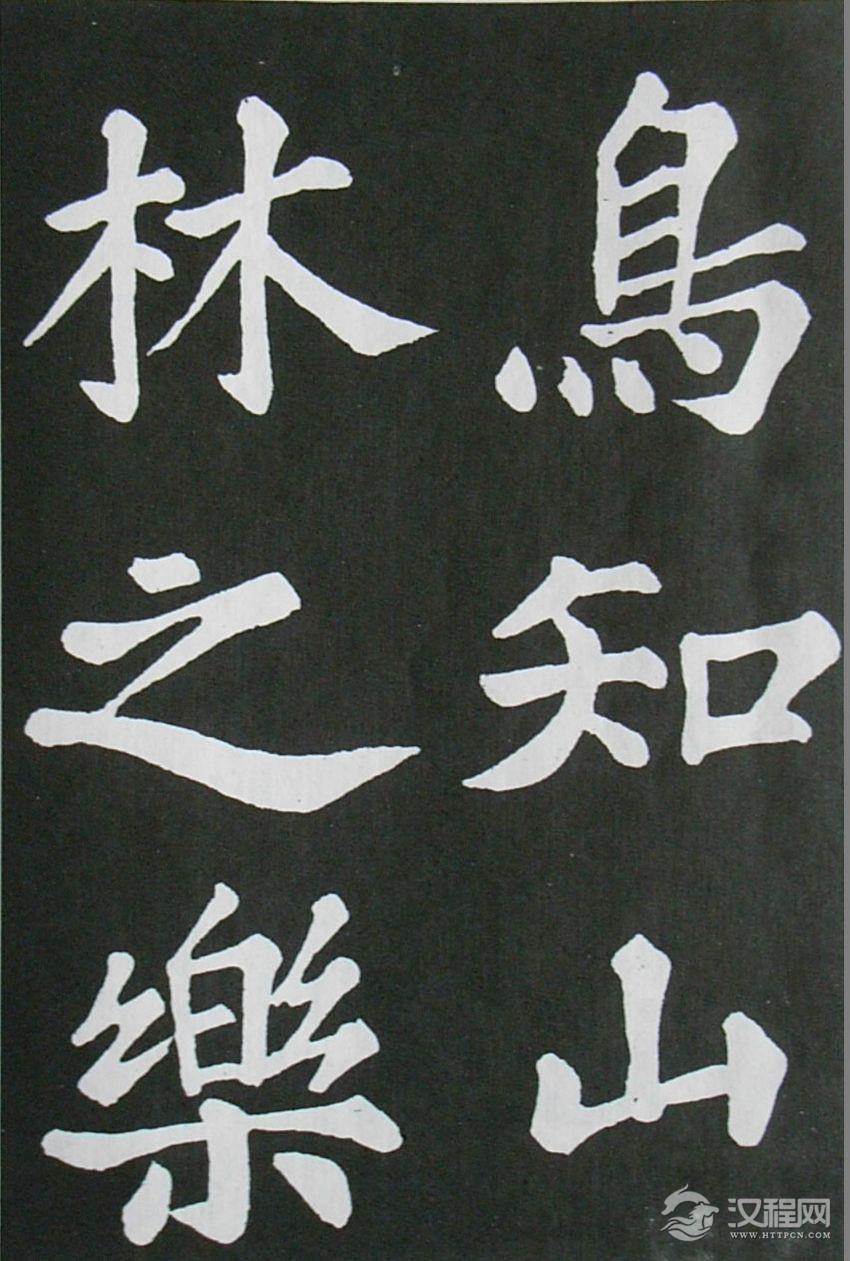 鳥知山
林之樂
汉程网
WWW.HTTPCN.COM